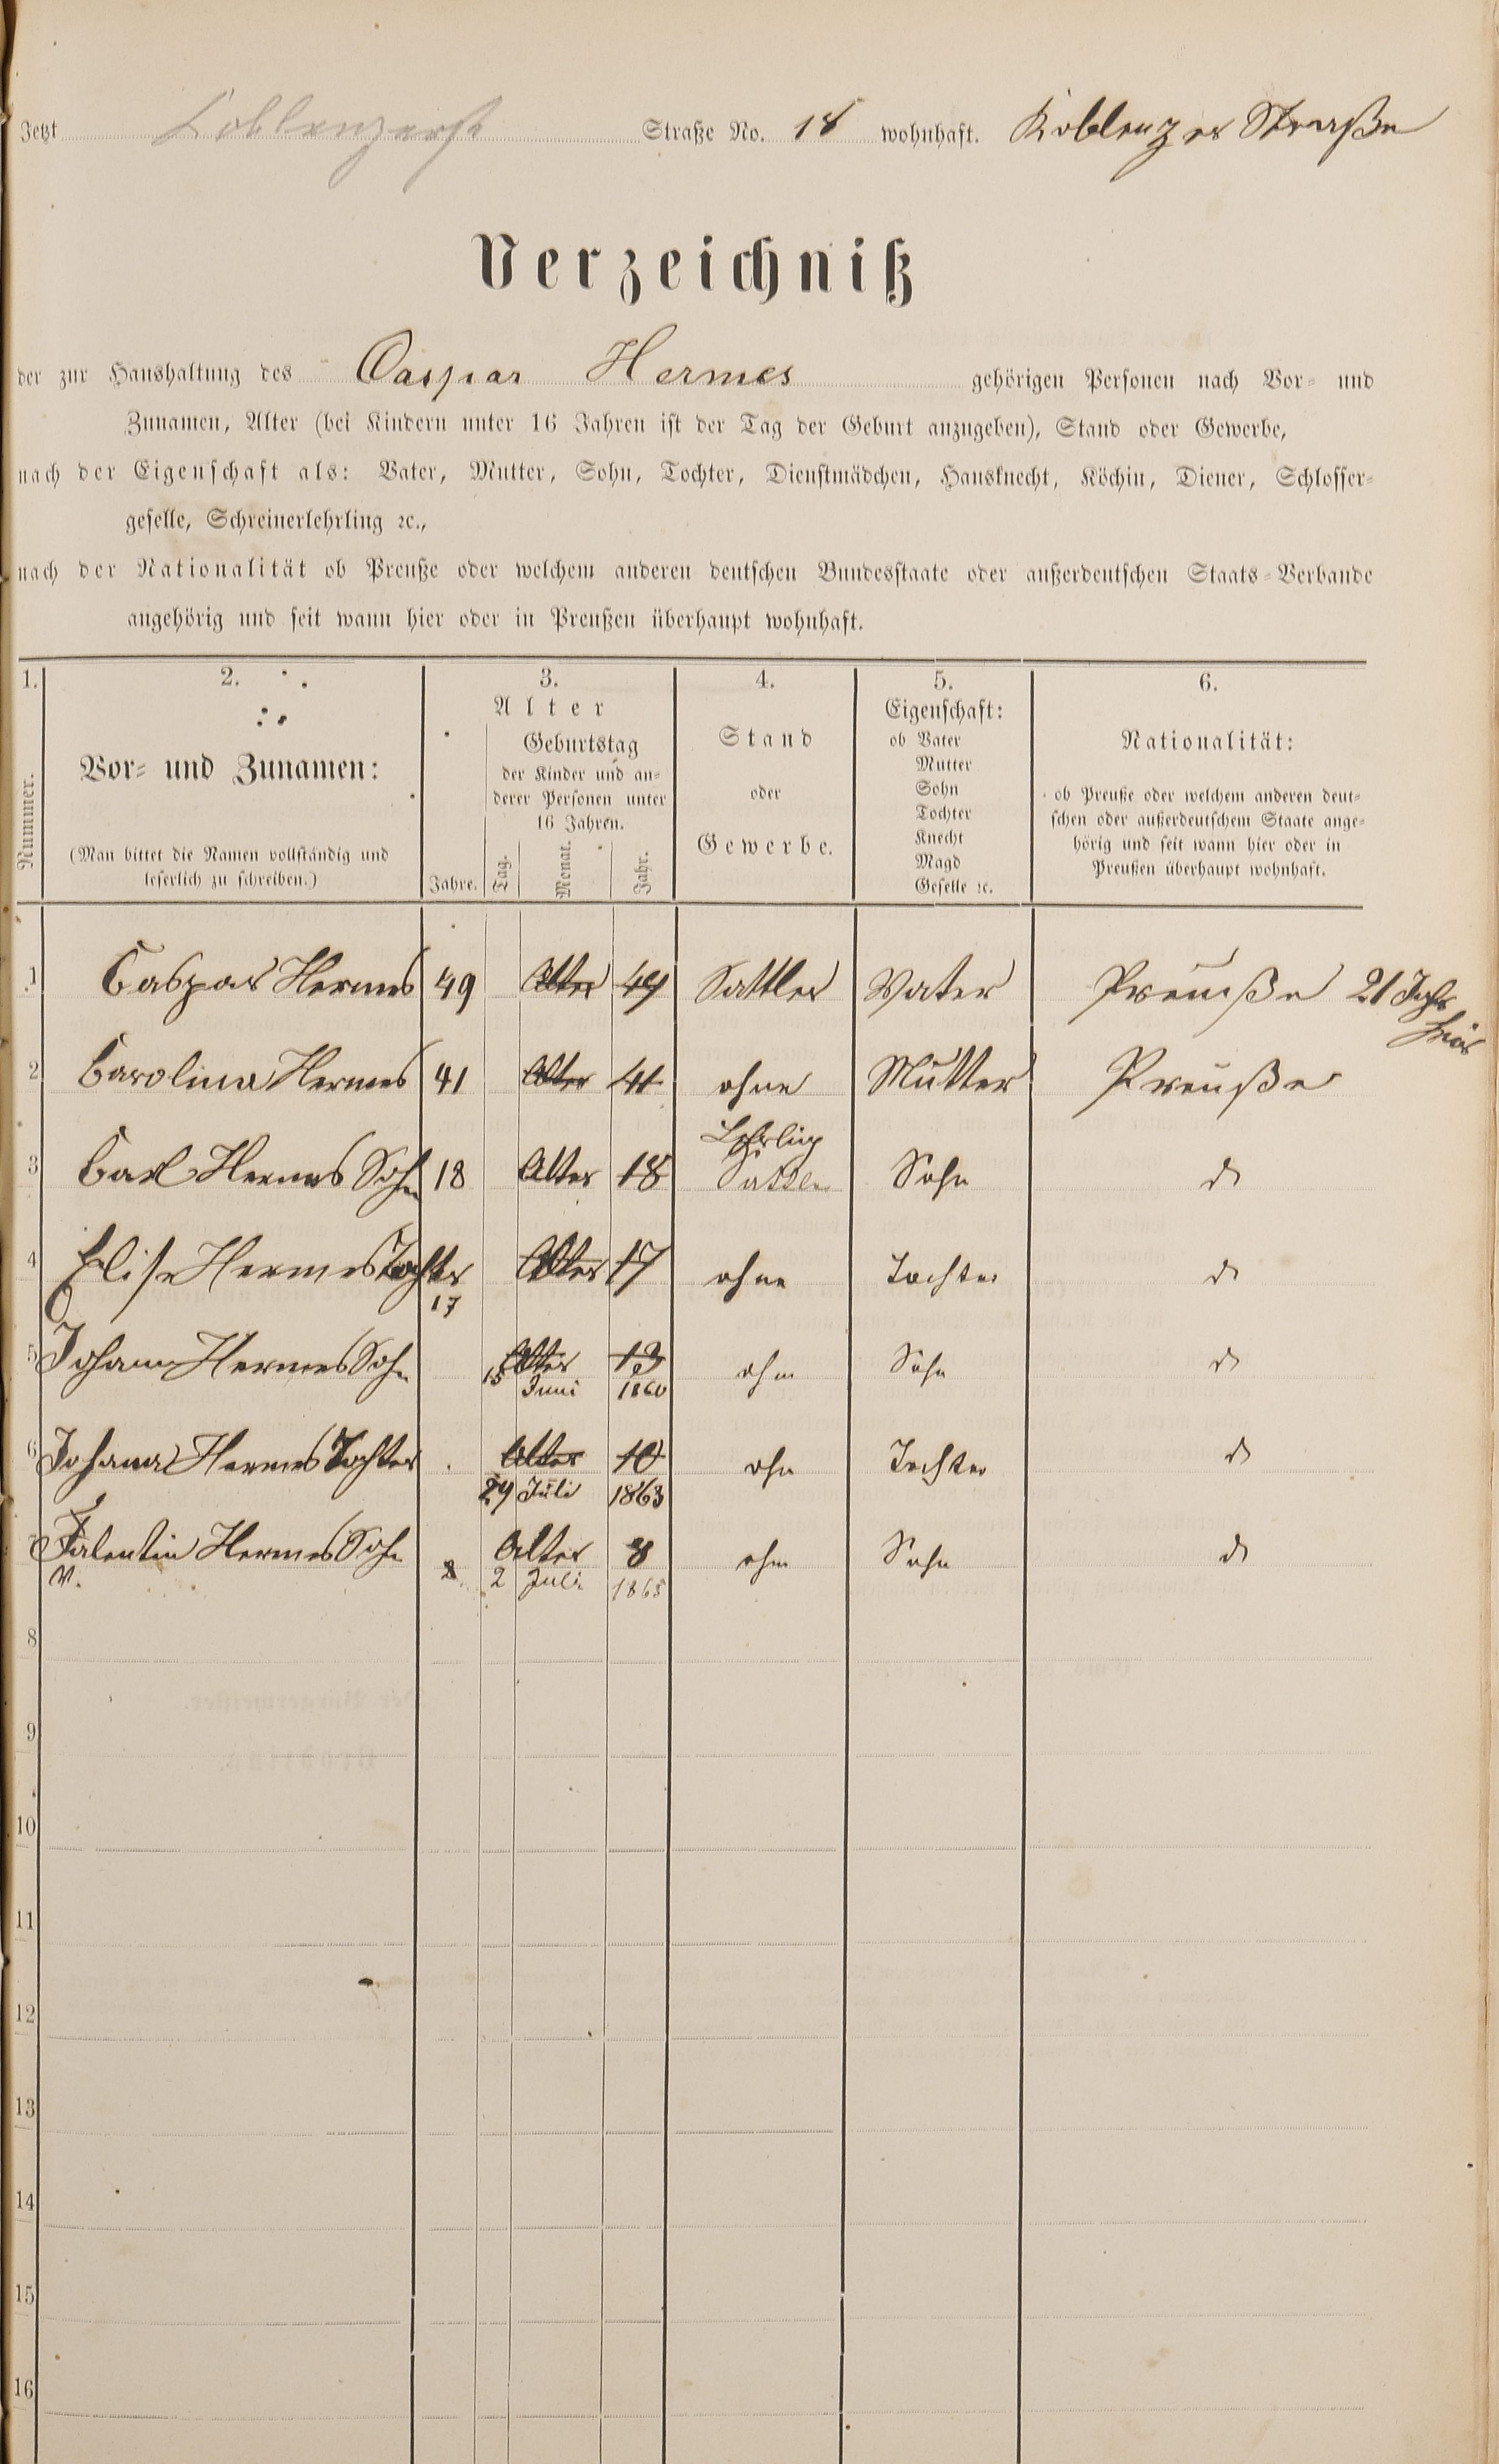 Jetzt Coblenzerst Straße No. 18 wohnhaft. Koblenzer Straße
Verzeichniß
der zur Haushaltung des Caspar Hermes gehörigen Personen nach Vor- und
Zunamen, Alter (bei Kindern unter 16 Jahren ist der Tag der Geburt anzugeben), Stand oder Gewerbe,
nach der Eigenschaft als: Vater, Mutter, Sohn, Tochter, Dienstmädchen, Hausknecht, Köchin, Diener, Schlosser-
geselle, Schreinerlehrling ꝛc.,
nach der Nationalität ob Preuße oder welchem anderen deutschen Bundesstaate oder außerdeutschen Staats-Verbande
angehörig und seit wann hier oder in Preußen überhaupt wohnhaft.
1. 2. 3. 4. 5. 6.
Nummer.
Vor- und Zunamen:
(Man bittet die Namen vollständig und
leserlich zu schreiben.)
Alter
Jahre.
Geburtstag
der Kinder und an-
derer Personen unter
16 Jahren.
Tag. Monat. Jahr.
Stand
oder
Gewerbe.
Eigenschaft:
ob Vater
Mutter
Sohn
Tochter
Knecht
Magd
Geselle ꝛc.
Nationalität:
ob Preuße oder welchem anderen deut-
schen oder außerdeutschem Staate ange-
hörig und seit wann hier oder in
Preußen überhaupt wohnhaft.
1 Caspar Hermes 49 Alter 49 Sattler Vater Preuße 21 Jahr
hier
2 Carolina Hermes 41 Alter 41 ohne Mutter Preuße
Lehrling
3 Carl Hermes Sohn 18 Alter 18 Sattler Sohn do
4 Elise Hermes Tochter Alter 17 ohne Tochter do
17
5 Johann Hermes Sohn Alter 13 ohne Sohn do
15 Juni 1860
6 Johana Hermes Tochter Alter 10 ohn Tochter do
29 Juli 1863
7 Falentin Hermes Sohn Alter 8 ohne Sohn do
V. 2 2 Juli 1865
8
9
10
11
12
13
14
15
16